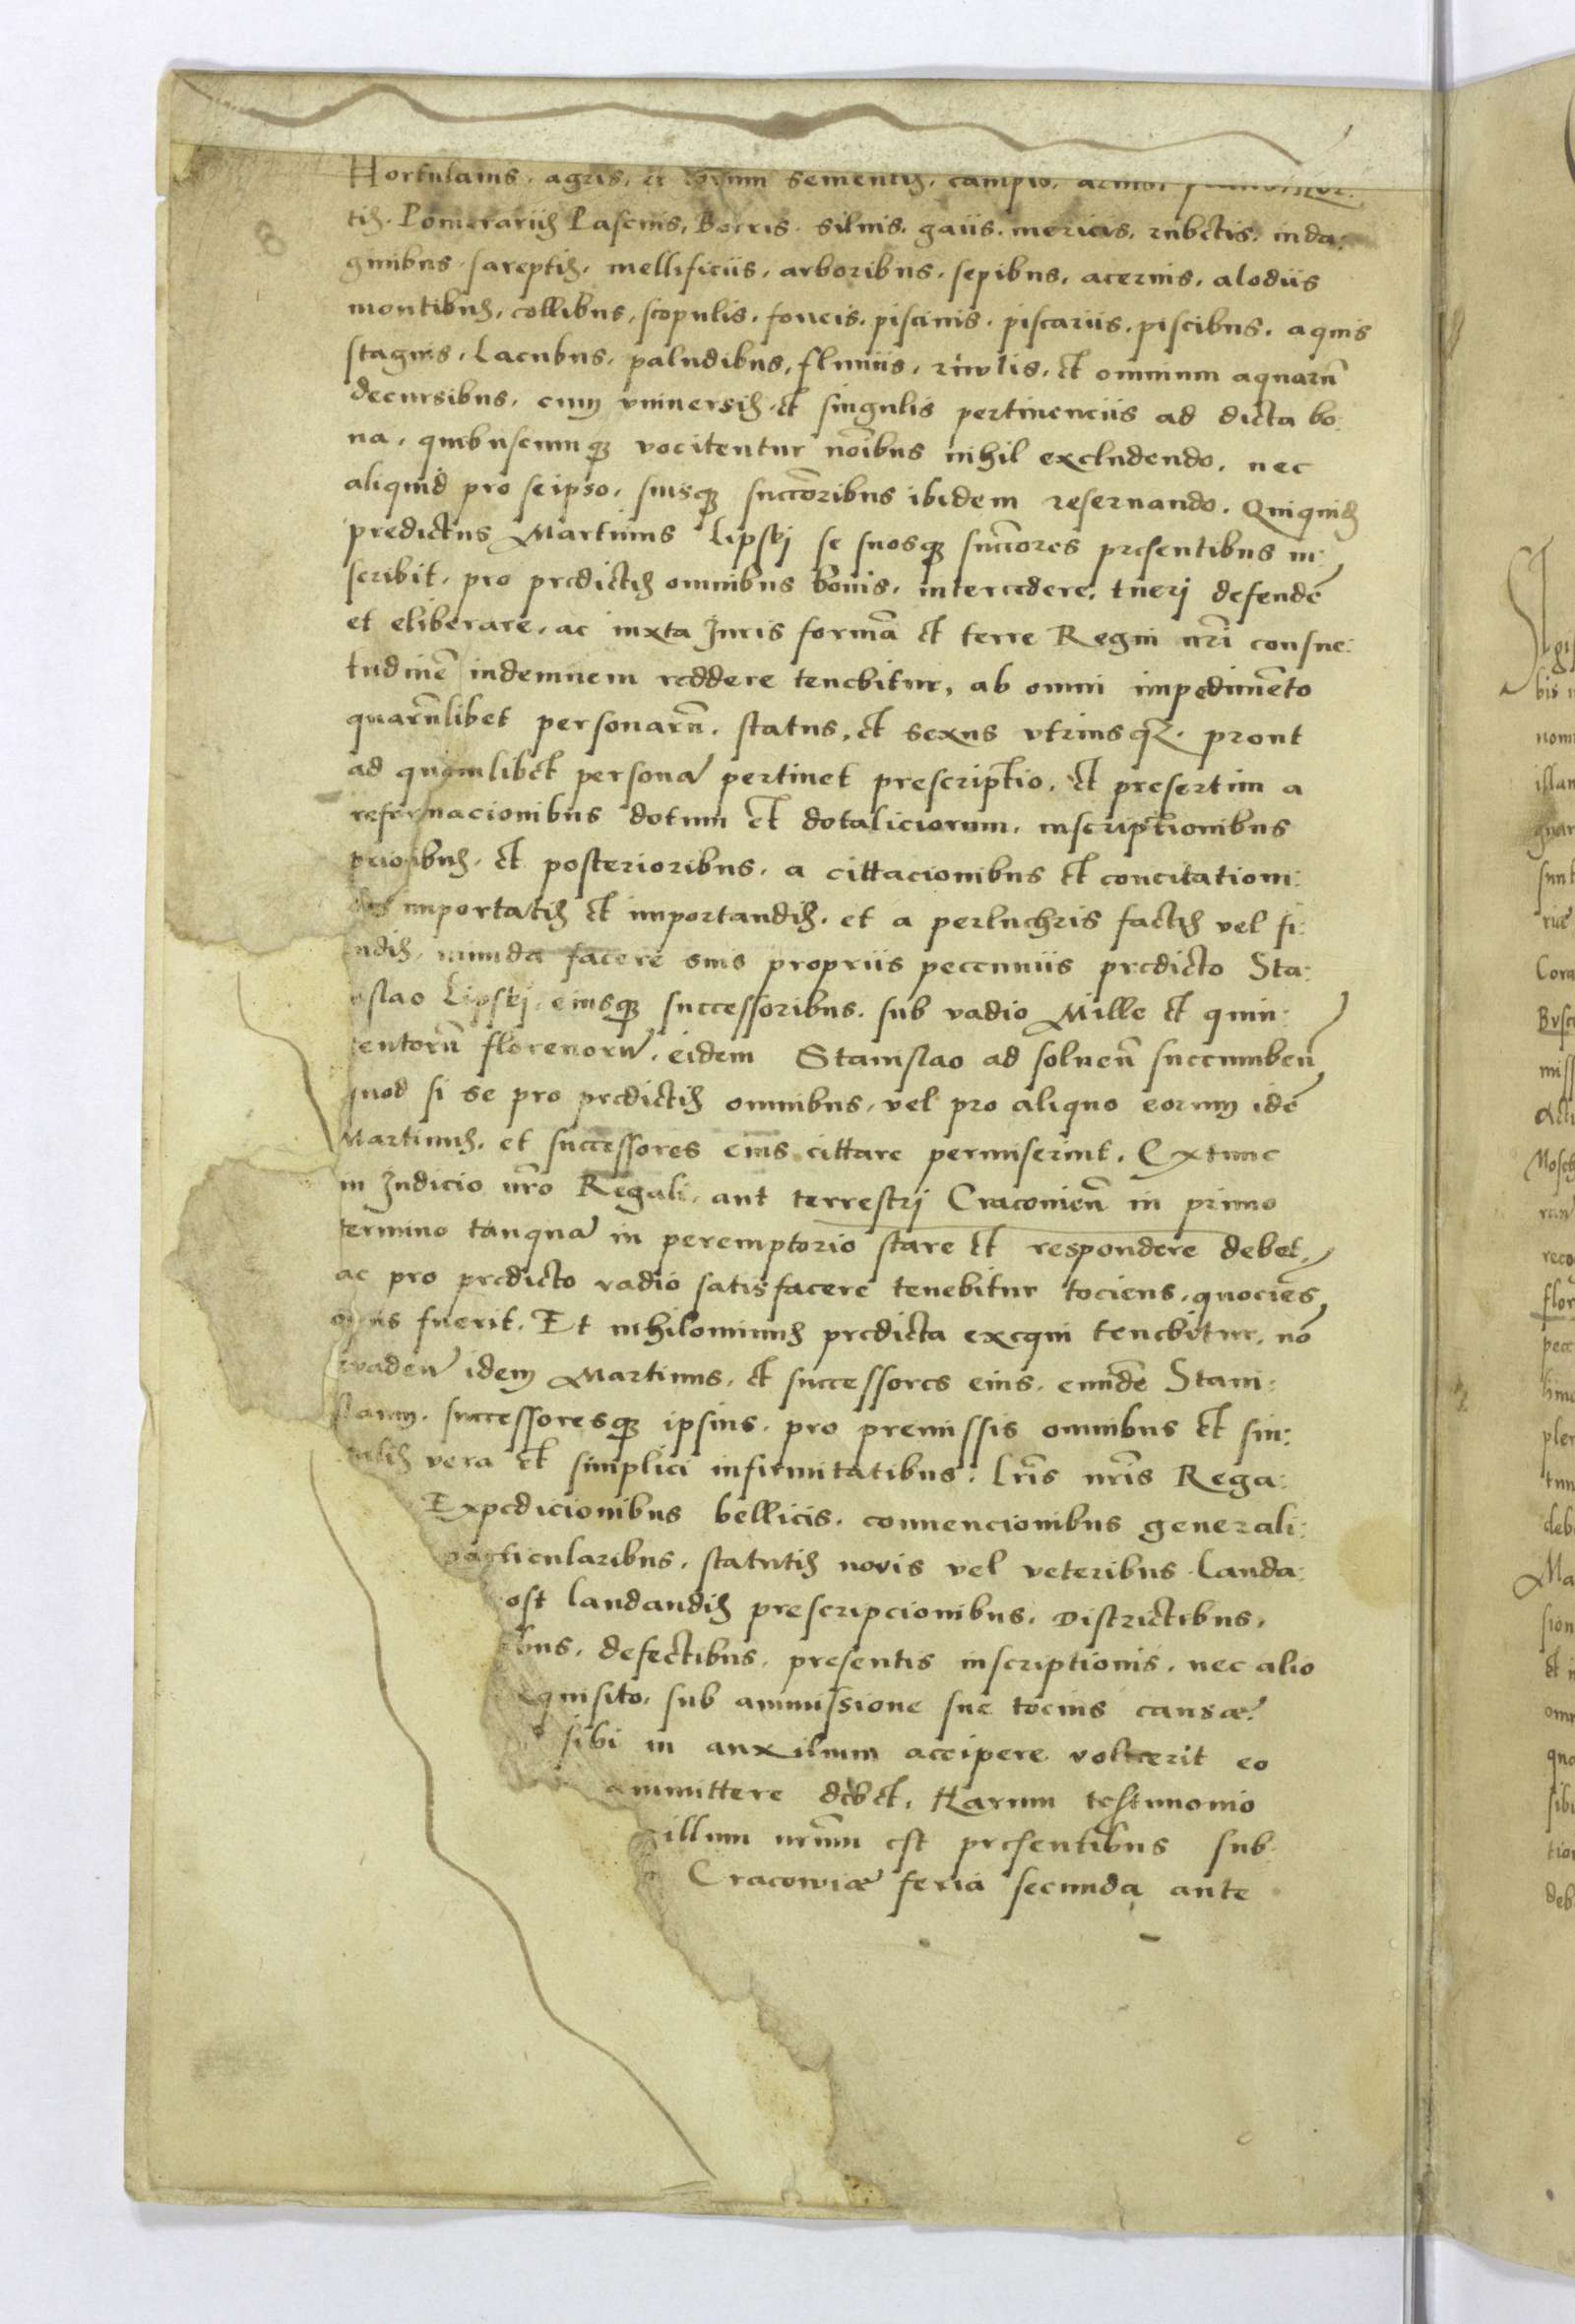 Hortulanis, agris, et eorum sementis, campis,
tis. Pomerariis Pascuis, Borris, siluis, gaiis, mericis, rubetis, inda:
ginibus, sareptis, mellificiis, arboribus, sepibus, aceruis, alodiis
montibus, collibus, scopulis, foueis, piscinis, piscariis, piscibus, aquis
stagnis, Lacubus, paludibus, fluuiis, riuulis, et omnium aquarũ
decursibus, cum vniuersis, et singulis pertinenciis ad dicta bo:
na, quibuscunq3 vocitentur noĩbus nihil excludendo, nec
aliquid pro seipso, suisq3 succẽoribus ibidem reseruando. Quiquidẽ
predictus Martinus Lipskj se suosq3 succẽores presentibus in:
scribit, pro predictis omnibus bonis, intercedere, tuerj defendẽ
et eliberare, ac iuxta Juris formã et terre Regni nrĩ consue:
tudinẽ indemnem reddere tenebitur, ab omni impedimẽto
quarũlibet personarũ, status, et sexus vtriusq3, prout
ad quamlibet personã pertinet prescriptio, et presertim a
reformacionibus dotum et dotaliciorum, inscriptionibus
prioribus, et posterioribus, a cittacionibus et concitationi:
bus importatis et importandis, et a perlucris factis vel fi:
ndis, munda facere suis propriis pecunniis predicto Sta:
islao Lipskj, eiusq3 successoribus, sub vadio Mille et quin:
gentorũ florenorũ, eidem Stanislao ad soluẽn succumbẽn
quod si se pro predictis omnibus, vel pro aliquo eorum idẽ
Martinus, et successores eius cittare permiserint, Extunc
in Judicio nr̃o Regali, aut terrestrj Cracouieñ in primo
termino tanquã in peremptorio stare et respondere debet,
ac pro predicto vadio satisfacere tenebitur tociens, quociẽs
opus fuerit. Et nihilominus predicta exequi tenebitur, nõ
euadeñ idem Martinus, et successores eius, eundẽ Stani:
slaum, successoresq3 ipsius, pro premissis omnibus et sin:
gulis vera et simplici infirmitatibus: Lrĩs nrĩs Rega:
Expedicionibus bellicis, conuencionibus generali:
particularibus, statutis novis vel veteribus Lauda:
ost laudandis prescripcionibus, Districtibus,
bus, defectibus, presentis inscriptionis, nec alio
equisito, sub ammissione sue tocius causæ.
sibi in auxilium accipere voluerit eo
ammittere debet, Harum testimonio
gillum nrũm est presentibus sub
Cracowiæ feria secunda ante